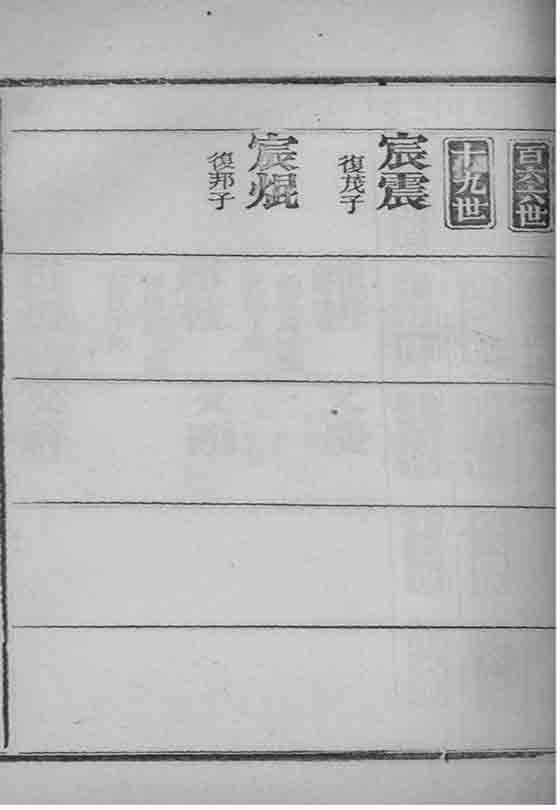 百六六世
十九世
宸震
復茂子
宸焜
復邦子